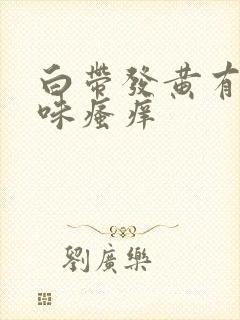 白帶發黃有
味瘙痒
劉廣樂